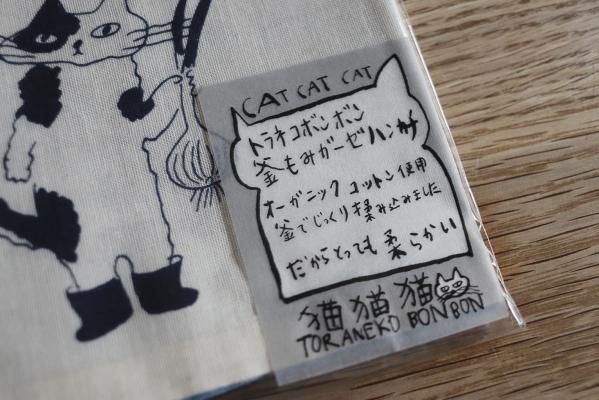 CAT CAT CAT
トラネコボンボン
釜もみガーゼハンカチ
オーガニック コットン使用
釜でじっくり揉み込みました
だからとっても 柔らかい
猫 猫 猫
TORANEKO BONBON